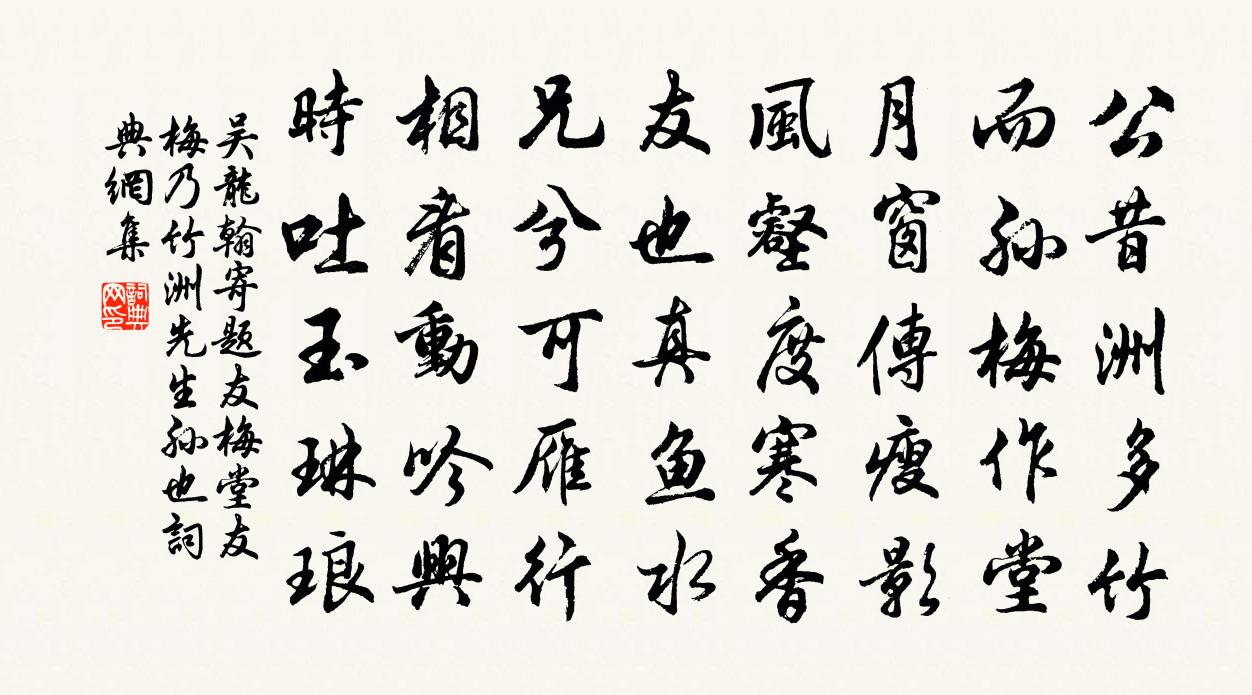 公昔洲多竹
而孙梅作堂
月窗傳瘦影
風壑度寒香
友也真鱼水
兄兮可雁行
相看動吟興
時吐玉琳琅
吴龍翰寄题友梅堂友
梅乃竹洲先生孙也詞
典網集
詞典
网印